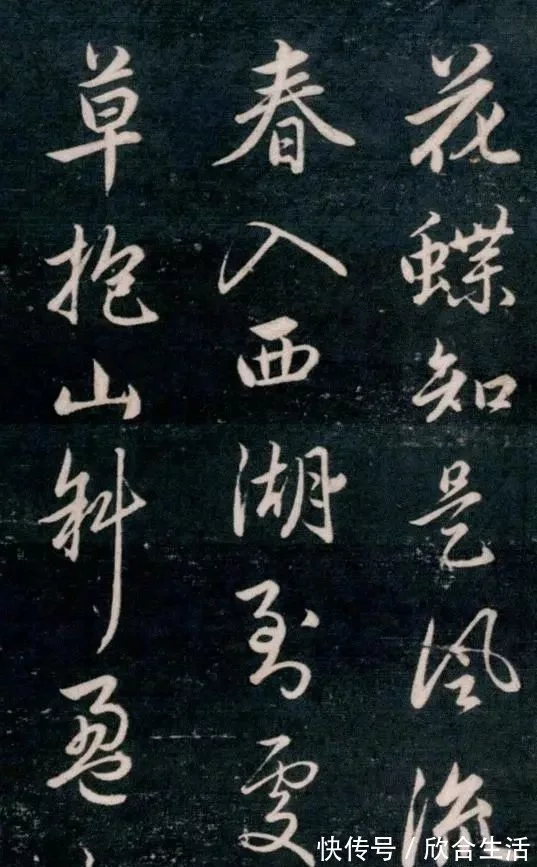 花蝶知是風流
春入西湖到處
草抱山斜盈
快传号/欣合生活